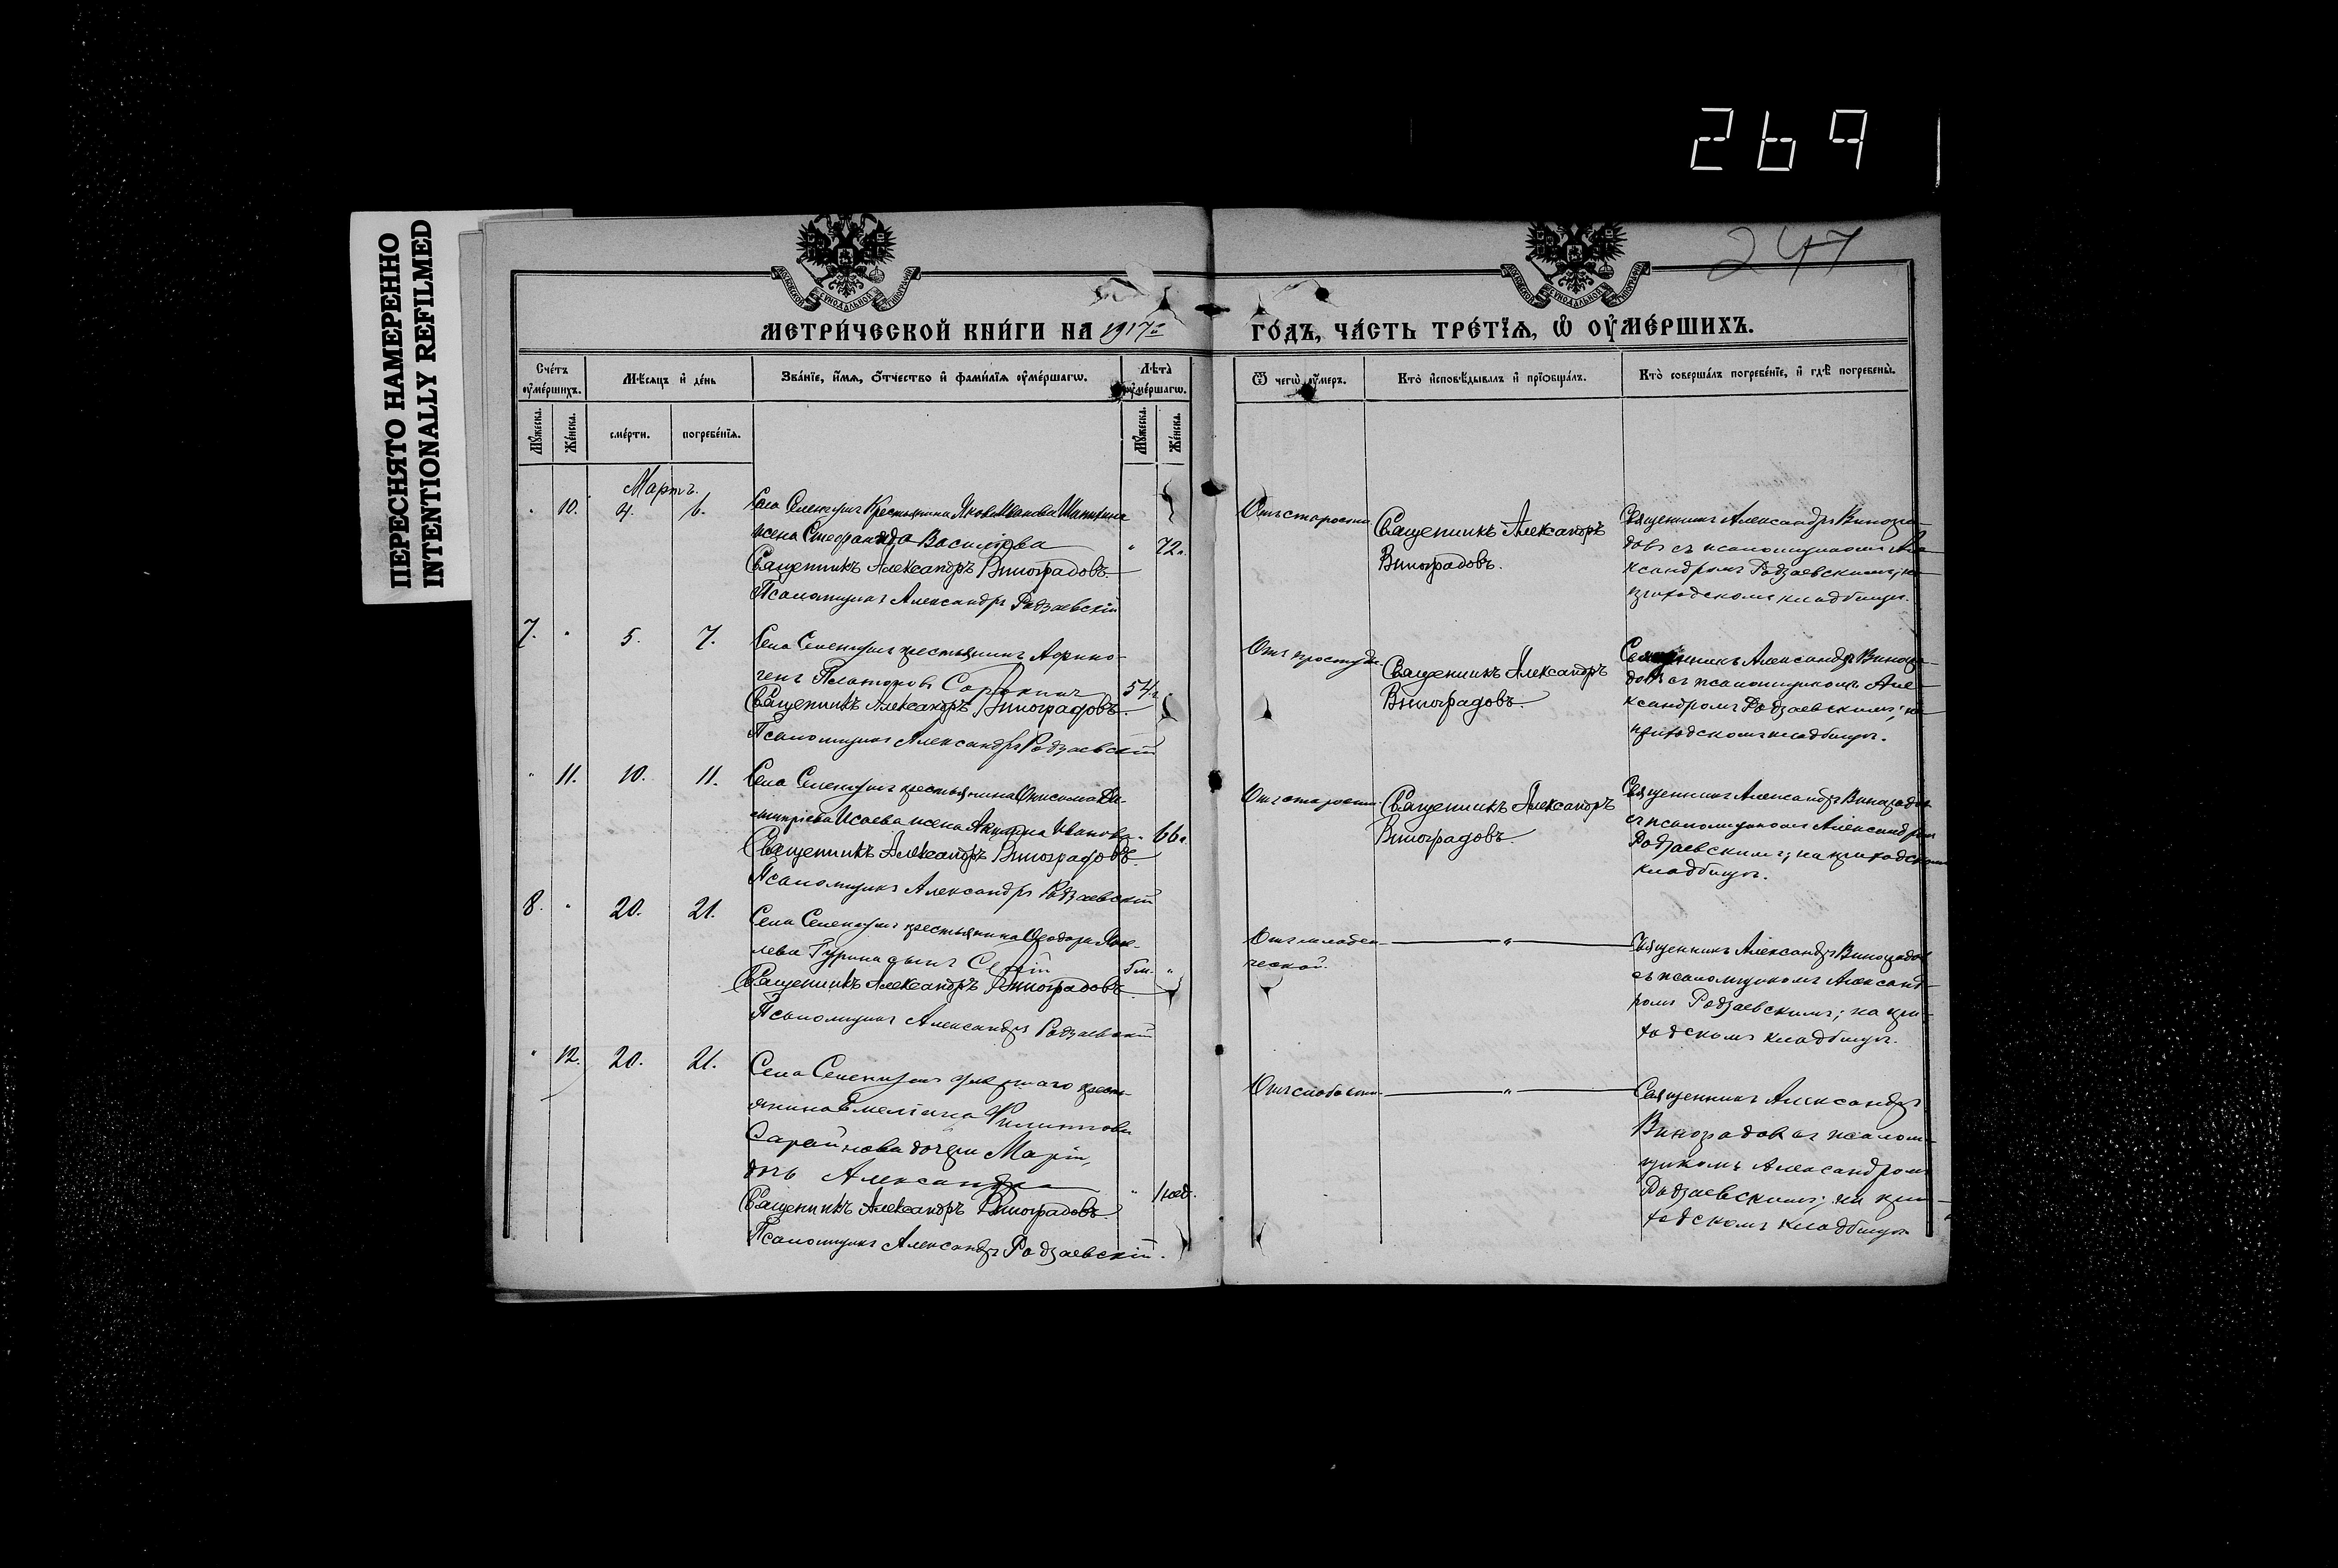 269
ПЕРЕСНЯТО НАМЕРЕННО
INTENTIONALLY REFILMED
247
МЕТРИ́ЧЕСКОЙ КНИ́ГИ НА 1917й
ГО́ДЪ, ЧА́СТЬ ТРЕ́ТЇѦ, Ѽ ОУ҆МЕ́РШИХЪ.
Сче́тъ оу҆ме́ршихъ.
Мѣ́сѧцъ и҆ де́нь
Зва́нїе, и҆́мѧ, ѻ҆́тчество и҆ фами́лїѧ оу҆ме́ршагѡ.
Лѣ́та оу҆ме́ршагѡ.
Ѿ чегѡ̀ оу҆́меръ.
Кто̀ и҆сповѣ́дывалъ и҆ прїѡбща́лъ.
Кто̀ соверша́лъ погребе́нїе, и҆ гдѣ̀ погребены̀.
Мꙋ́жеска.
Же́нска.
сме́рти.
погребе́нїѧ.
Мꙋ́жеска.
Же́нска.
Мартъ.
10. 4. 6. Села крестьянина Якова Иванова
жена Васильева 72 л.
Священникъ Александръ Виноградовъ.
Псаломщикъ Александръ Радзаевскій
Отъ старости
Священникъ Александръ
Виноградовъ.
Священникъ Александръ Виногра-
довъ съ псаломщикомъ Але-
ксандромъ Радзаевскимъ; на
приходскомъ кладбищѣ.
7. 5. 7. Села крестьянинъ Афино-
генъ Платоновъ Сорокинъ 54 г.
Священникъ Александръ Виноградовъ.
Псаломщикъ Александръ Радзаевскій
Отъ простуды
Священникъ Александръ
Виноградовъ.
Священникъ Александръ Виногра-
довъ съ псаломщикомъ Але-
ксандромъ Радзаевскимъ; на
приходскомъ кладбищѣ.
11. 10. 11. Села крестьянина Онисима Ди-
митріева Исаева жена Иванова 66 л.
Священникъ Александръ Виноградовъ.
Псаломщикъ Александръ Радзаевскій
Отъ старости
Священникъ Александръ
Виноградовъ.
Священникъ Александръ Виноградовъ
съ псаломщикомъ Александромъ
Радзаевскимъ; на приходскомъ
кладбищѣ.
8. 20. 21. Села крестьянина Ѳеодора
сынъ 5 м.
Священникъ Александръ Виноградовъ.
Псаломщикъ Александръ Радзаевскій
Отъ младен-
ческой.
Священникъ Александръ Виноградовъ
съ псаломщикомъ Александ-
ромъ Радзаевскимъ; на при-
ходскомъ кладбищѣ.
12. 20. 21. Села кресть-
янина Емеліана Филиппова
дочери Маріи,
дочь Александра 1 нед.
Священникъ Александръ Виноградовъ.
Псаломщикъ Александръ Радзаевскій.
Отъ слабости
Священникъ Александръ
Виноградовъ съ псалом-
щикомъ Александромъ
Радзаевскимъ; на при-
ходскомъ кладбищѣ